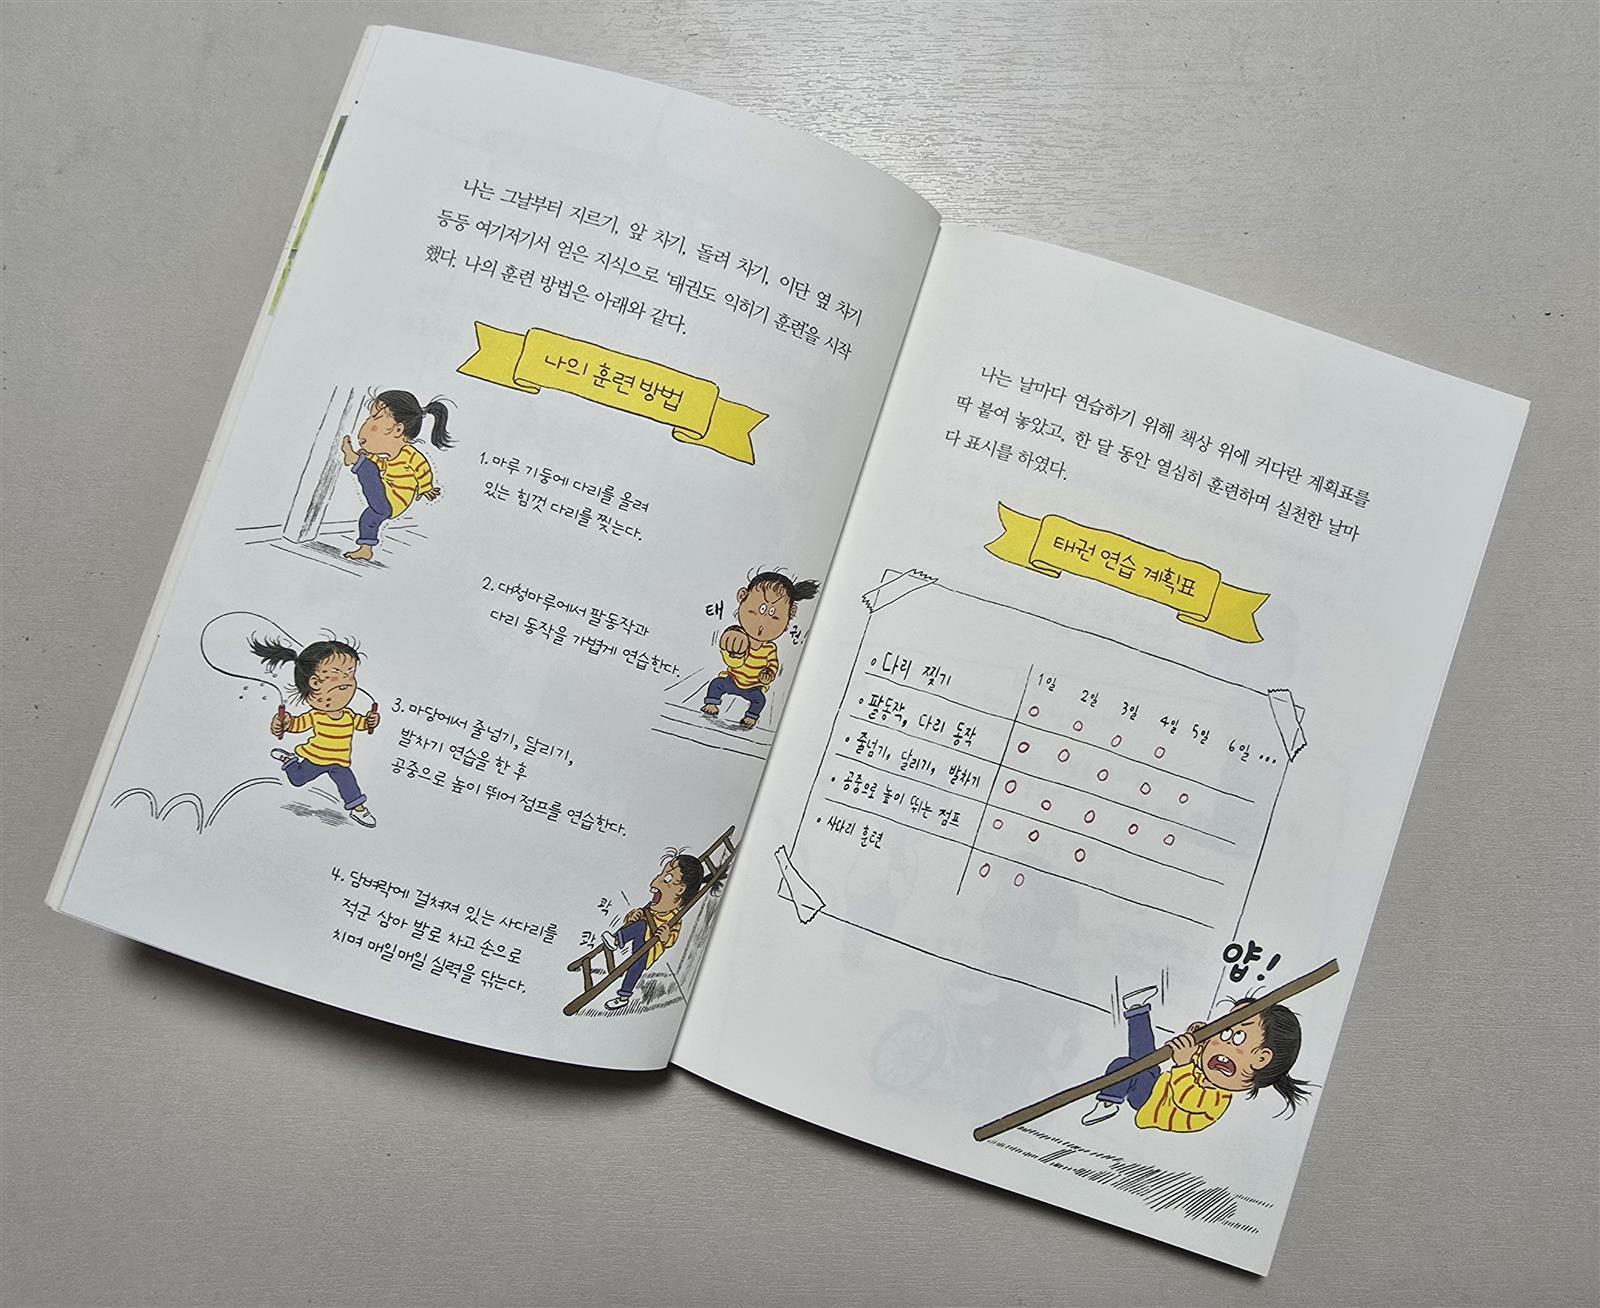 나는 그날부터 지르기, 앞 차기, 돌려 차기, 이단 옆 차기
등등 여기저기서 얻은 지식으로 '태권도 익히기 훈련'을 시작
했다. 나의 훈련 방법은 아래와 같다.
나의 훈련 방법
1. 마루 기둥에 다리를 올려
있는 힘껏 다리를 찢는다.
2. 대청마루에서 팔동작과
다리 동작을 가볍게 연습한다.
태
권!
3. 마당에서 줄넘기, 달리기,
발차기 연습을 한 후
공중으로 높이 뛰어 점프를 연습한다.
4. 담벼락에 걸쳐져 있는 사다리를
적군 삼아 발로 차고 손으로
치며 매일매일 실력을 닦는다.
콱
콱
나는 날마다 연습하기 위해 책상 위에 커다란 계획표를
딱 붙여 놓았고, 한 달 동안 열심히 훈련하며 실천한 날마
다 표시를 하였다.
태권 연습 계획표
1일 2일 3일 4일 5일 6일 ...
• 다리 찢기
• 팔동작, 다리 동작
• 줄넘기, 달리기, 발차기
• 공중으로 높이 뛰는 점프
• 사다리 훈련
얍!